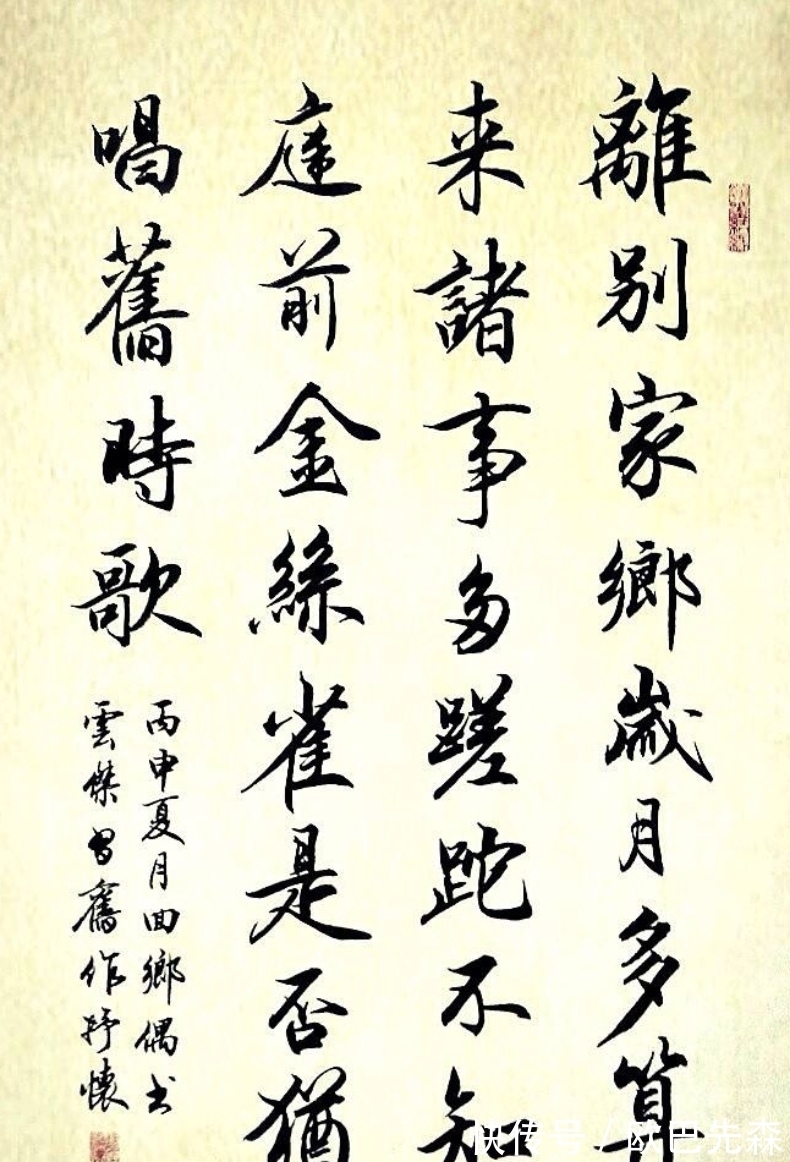 離別家鄉歲月多算
来諸事多蹉跎不知
庭前金絲雀是否猶
唱舊時歌
丙申夏月回鄉偶书
雲傑舊作抒懷
快传号 / 欧巴先森